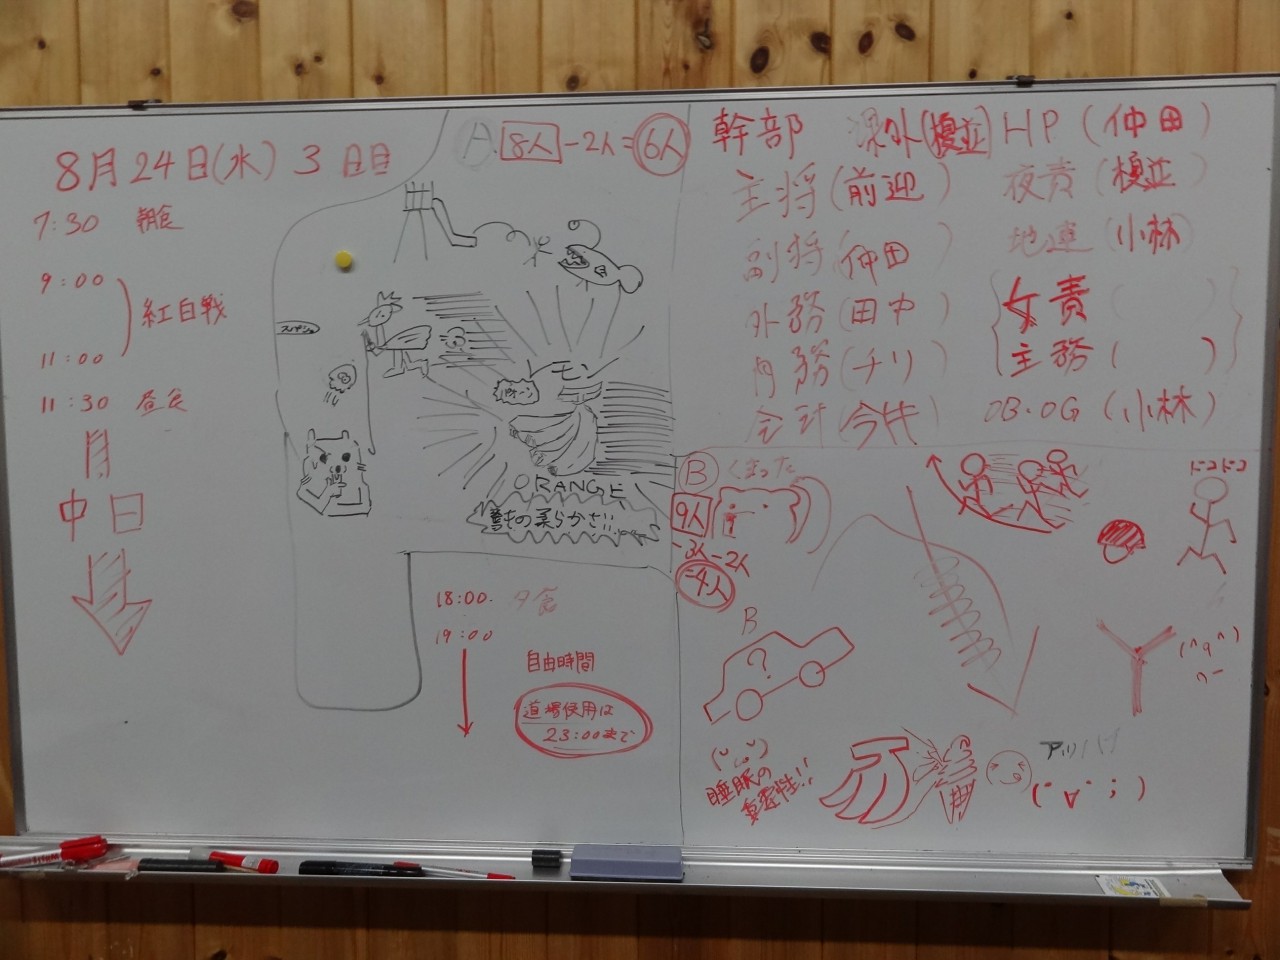 8月24日(水) 3日目
7:30 朝食
9:00
紅白戦
11:00
11:30 昼食
中日
18:00. 夕食
19:00
自由時間
道場使用は
23:00まで
A. 8人-2人=6人
モン
ORANGE
の柔らかさ!!
幹部 課外(榎並) HP(仲田)
主将(前迎) 夜責(榎並)
副将(仲田) 地連(小林)
外務(田中) 女責( )
内務(チリ) 主務( )
会計(今井) OB.OG(小林)
B くまった
9人
-3人-2人
=4人
B
?
ドコドコ
睡眠の
重要性!!
(^q^)
(・∀・;)